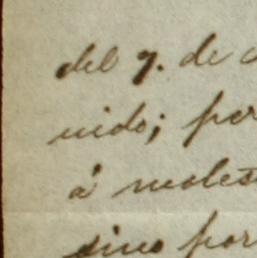 del 9. de
nido; por
á moles
sino por